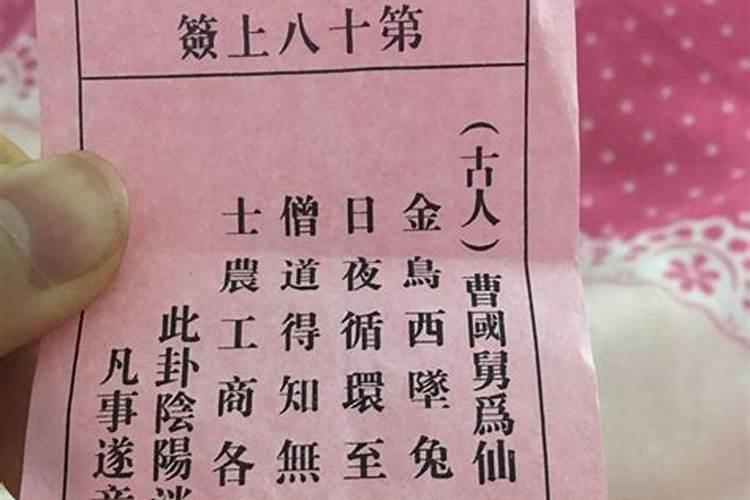 第十八上簽
（古人）曹國舅爲仙
金鳥西墜兔
日夜循環至
僧道得知無
士農工商各
此卦陰陽
凡事遂